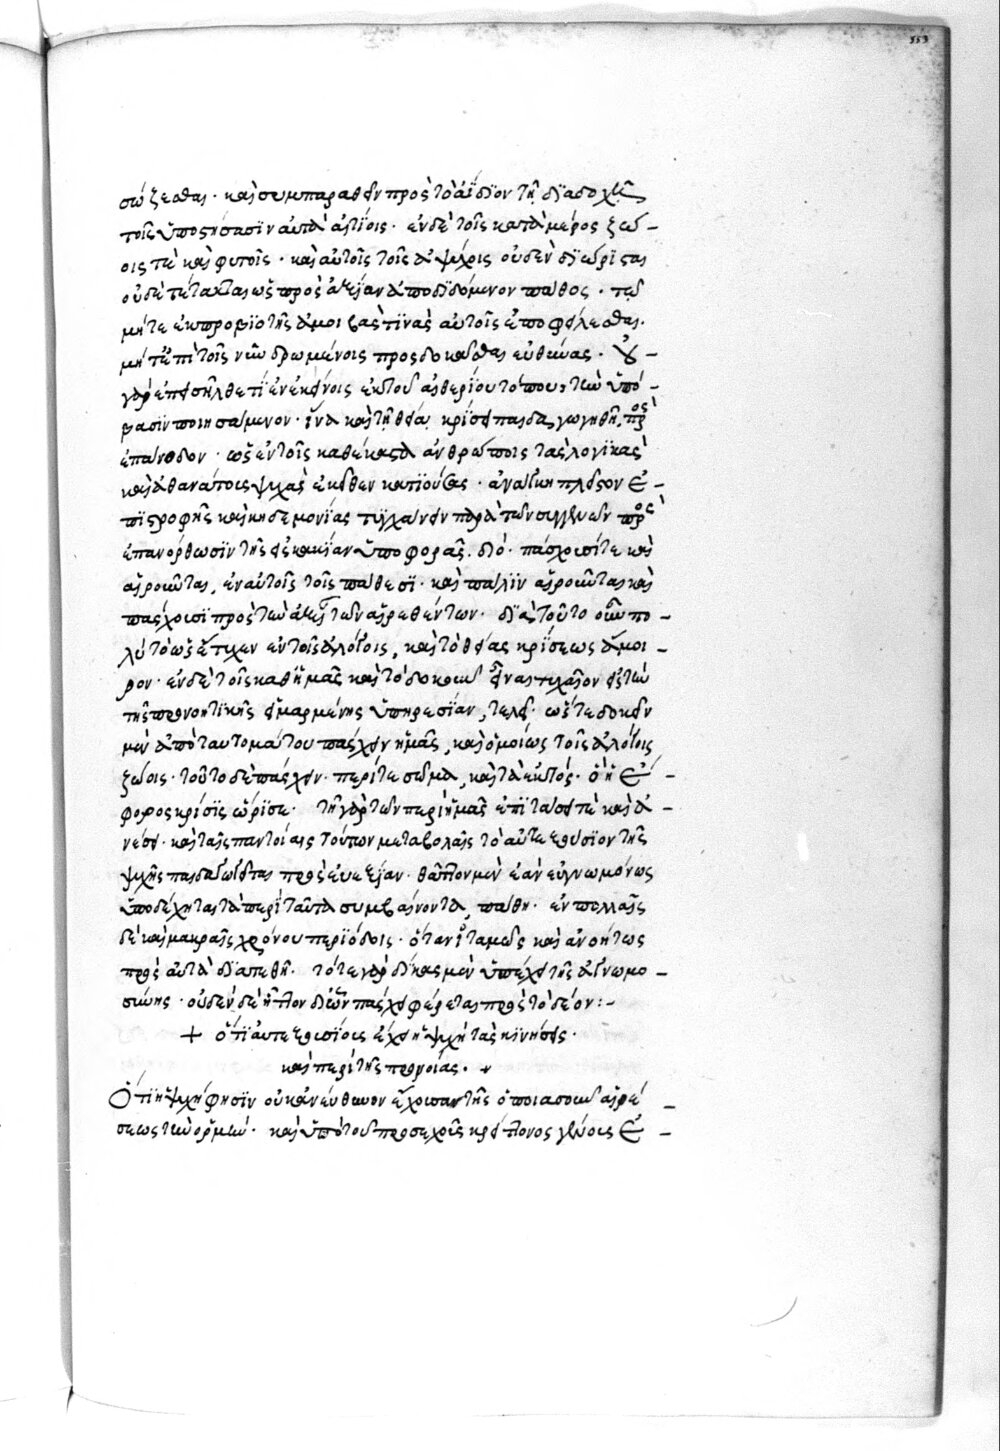 553
σώζεσθαι· καὶ συμπαραθεῖν πρὸς τὸ ἀΐδιον τῇ διαδοχῇ
τοῖς ὑποστήσασιν αὐτὰ αἰτίοις· ἐν δὲ τοῖς κατὰ μέρος ζώ-
οις τὲ καὶ φυτοῖς· καὶ αὐτοῖς τοῖς ἀψύχοις οὐδὲν διώρισται
οὐδὲ τέτακται ὡς πρὸς ἀξίαν ἀποδιδόμενον πάθος· τῷ
μήτε ἐκ προβιοτῆς ἀμοιβάς τινας αὐτοῖς ἐποφείλεσθαι.
μήτ' ἐπὶ τοῖς νῦν δρωμένοις προσδοκᾶσθαι εὐθύνας· οὐ-
γὰρ ἐπεισῆλθέ τι ἐν ἐκείνοις ἐκ τοῦ αἰθερίου τόπου, τὴν ὑπό-
βασιν ποιησάμενον· ἵνα καὶ τῇ θείᾳ κρίσει παιδαγωγηθῇ πρὸς
ἐπάνοδον· ὡς ἐν τοῖς καθέκαστα ἀνθρώποις τὰς λογικὰς
καὶ ἀθανάτους ψυχὰς ἐκεῖθεν κατιούσας· ἀνάγκη πλείσον ἐ-
πιστροφῆς καὶ κηδεμονίας τυγχάνειν παρὰ τῶν συγγενῶν πρὸς
ἐπανόρθωσιν τῆς εἰς κακίαν ὑποφορᾶς. διὸ· πάσχουσί τε καὶ
αἱροῦνται, ἐν αὐτοῖς τοῖς πάθεσι· καὶ πάλιν αἱροῦνται καὶ
πάσχουσι πρὸς τὴν ἀξίαν τῶν αἱρεθέντων· διὰ τοῦτο οὖν πο-
λὺ τὸ ὡς ἔτυχεν ἐν τοῖς ἀλόγοις, καὶ τὸ θείας κρίσεως ἄμοι-
ρον· ἐν δὲ τοῖς καθ' ἡμᾶς καὶ τὸ δοκοῦν εἶναι τυχαῖον εἰς τὴν
τῆς προνοητικῆς εἱμαρμένης ὑπηρεσίαν, τελεῖ· ὥστε δοκεῖν
μὲν ἀπὸ ταυτομάτου πάσχειν ἡμᾶς, καὶ ὁμοίως τοῖς ἀλόγοις
ζώοις· τοῦτο δὲ πάσχειν· περί τε σῶμα, καὶ τὰ ἐκτός· ὃ ἡ ἔ-
φορος κρίσις ὥρισε· τῇ γὰρ τῶν περὶ ἡμᾶς ἐπιτάσει τὲ καὶ ἀ-
νέσει· καὶ ταῖς παντοίαις τούτων μεταβολαῖς τὸ αὐτεξούσιον τῆς
ψυχῆς παιδαγωγεῖται πρὸς εὐεξίαν· θᾶττον μὲν ἐὰν εὐγνωμόνως
ὑποδέχηται τὰ περὶ ταῦτα συμβαίνοντα, πάθη· ἐν πολλαῖς
δὲ καὶ μακραῖς χρόνου περιόδοις· ὅταν ἰταμῶς καὶ ἀνοήτως
πρὸς αὐτὰ διατεθῇ· τότε γὰρ δίκας μὲν ὑπέχει τῆς ἀγνωμο-
σύνης· οὐδὲν δὲ ἧττον δι' ὧν πάσχει φέρεται πρὸς τὸ δέον:-
+ ὅτι αὐτεξουσίους ἔχει ἡ ψυχὴ τὰς κινήσεις·
καὶ περὶ τῆς προνοίας. +
Ὅτι ἡ ψυχή φησιν οὐκ ἀνεύθυνον ἔχουσαν τῆς ὁποιασοῦν αἱρέ-
σεως τὴν ὁρμὴν· καὶ ὑπὸ τοῦ προσεχοῦς κρείττονος γένους ἐ-